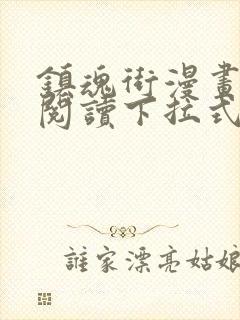 鎮魂街漫畫
閱讀下拉式
誰家漂亮姑娘